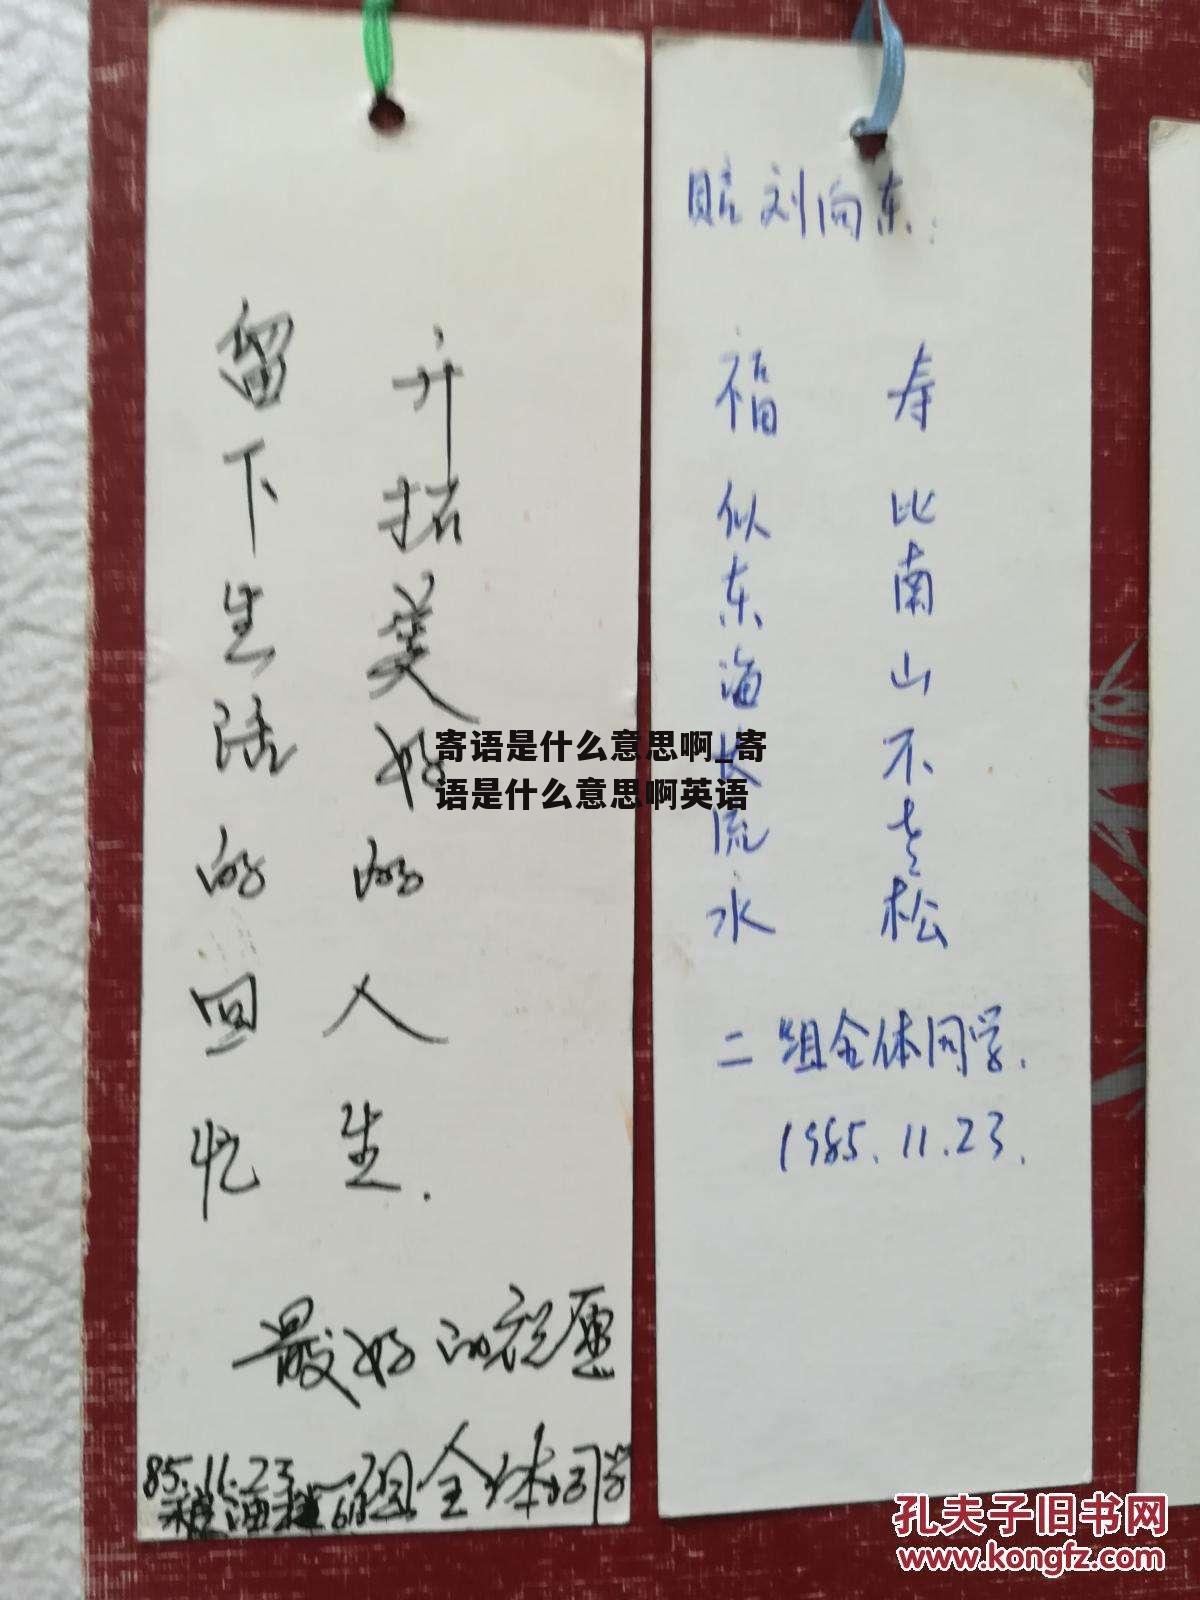 留下生活的回忆
开拓美好的人生.
最好的祝愿
85.11.23 一组全体同学
贻刘向东:
福似东海长流水
寿比南山不老松
二组全体同学.
1985.11.23.
寄语是什么意思啊_寄
语是什么意思啊英语
孔夫子旧书网
www.kongfz.com